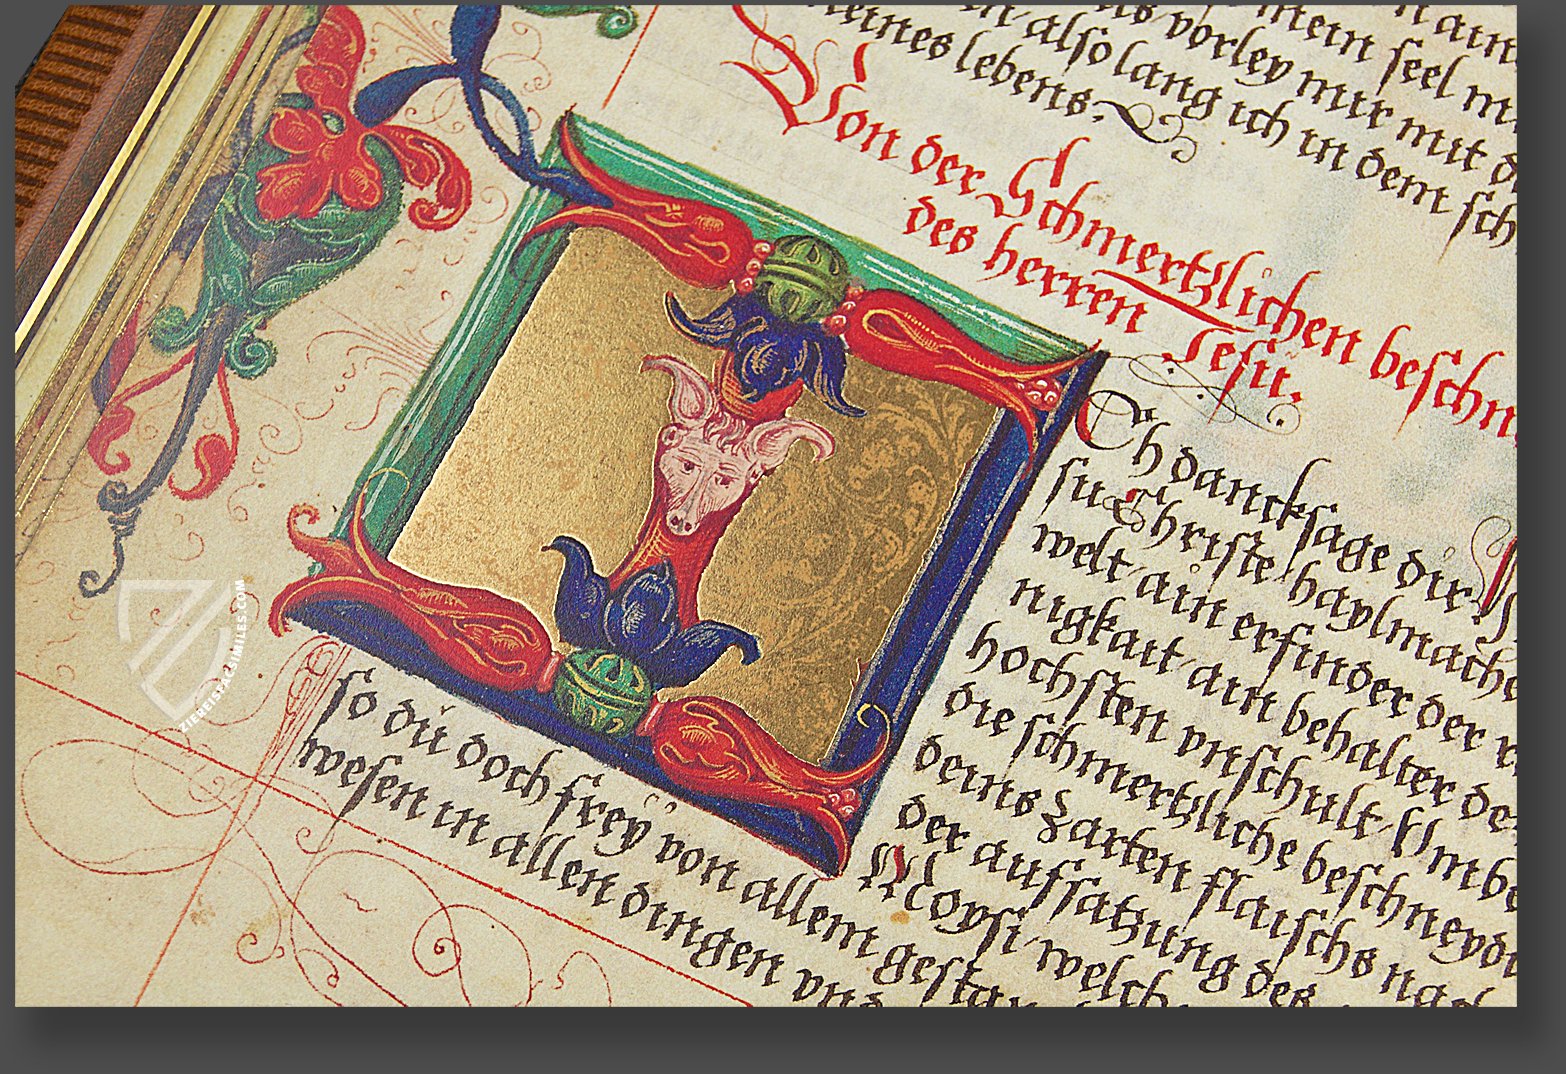 mein seel m
vorley mir mit d
in also lang ich in dem sch
meines lebens.
Von der Schmertzlichen beschn
des herren Jesu.
Ich dancksage dir
su Christe haylmache
welt ain erfinder der r
nigkait ain behalter de
hochsten vnschult Umbe
die schmertzliche beschneyd
deins Zarten flaischs nach
der auffsatzung des
Moysi welch
so du doch frey von allem gesta
wesen in allen dingen vnd
ZIEREISFACSIMILES.COM